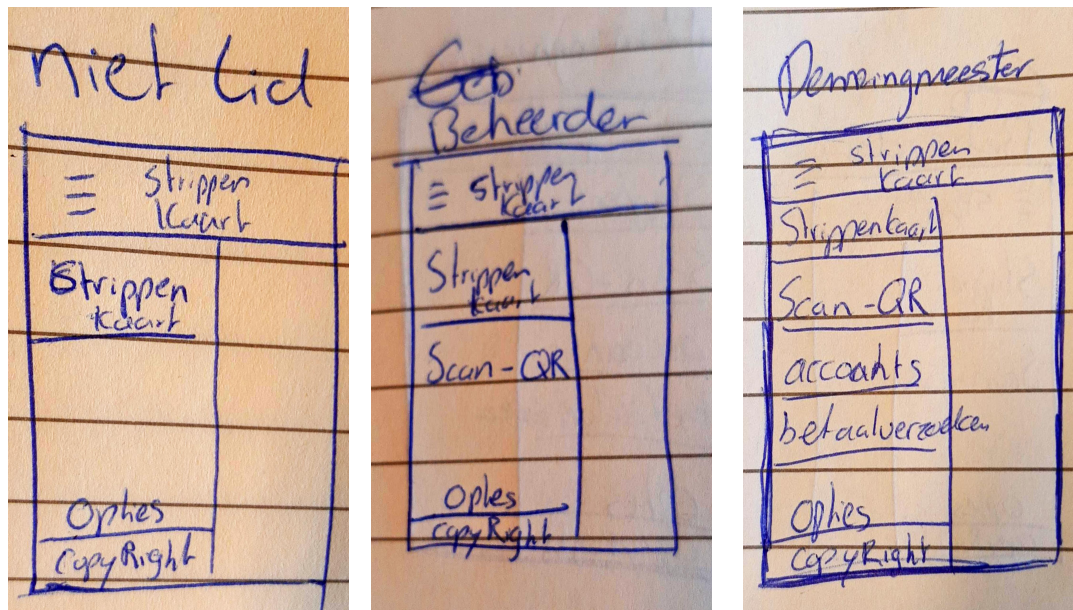 niet lid
≡ Strippen
kaart
Strippen
kaart
Opties
CopyRight
Beheerder
≡ Strippen
kaart
Strippen
kaart
Scan-QR
Opties
CopyRight
Penningmeester
≡ Strippen
kaart
Strippenkaart
Scan-QR
accounts
betaalverzoeken
Opties
CopyRight